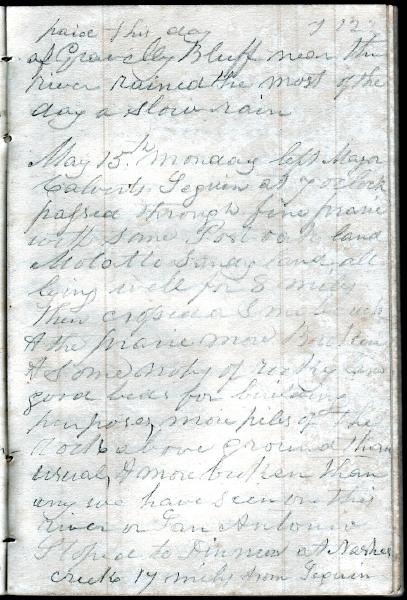 paid this day
of Gravelly Bluff near the
river rained the most of the
day a slow rain
May 15th Monday left Major
Calverts Seguin at 7 oclock
passed through fine prairie
with some Post oak land
Molatto Sandy land all
lying well for 8 miles
then crossed a Small creek
& the prairie more Broken
& Some Nobs of rocky
good beds for building
purposes more piles of the
rock above ground than
usual & more broken than
any we have seen on this
River or San Antonio
Stoped to Dinner at
creek 17 miles from Seguin